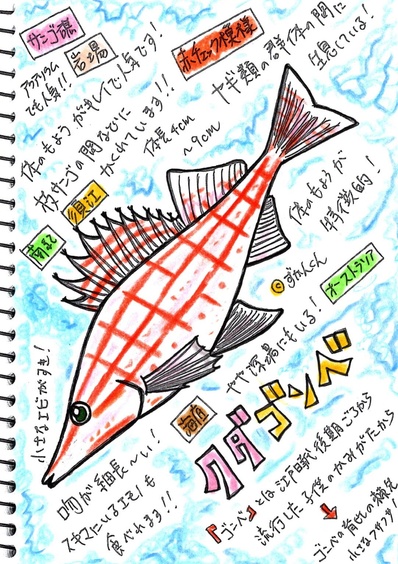 サンゴ礁
岩場
赤チェック模様
アクアリウム
でも人気!!
体のもようがキレイで人気です!
枝サンゴの間などに
かくれています!!
体長4cm
~9cm
ヤギ類の群体の間に
生息している!
体のもようが
特徴的!
須江
©ずかんくん
オーストラリア
やや深場にもいる!
小さなエビがすき!
クダゴンベ
吻が細長~い!
スキマにいるエモノも
食べれます!!
『ゴンベ』とは江戸時代後期ごろから
流行した子供のかみがたから
ゴンベの背ビレの
小さなフサフサ!